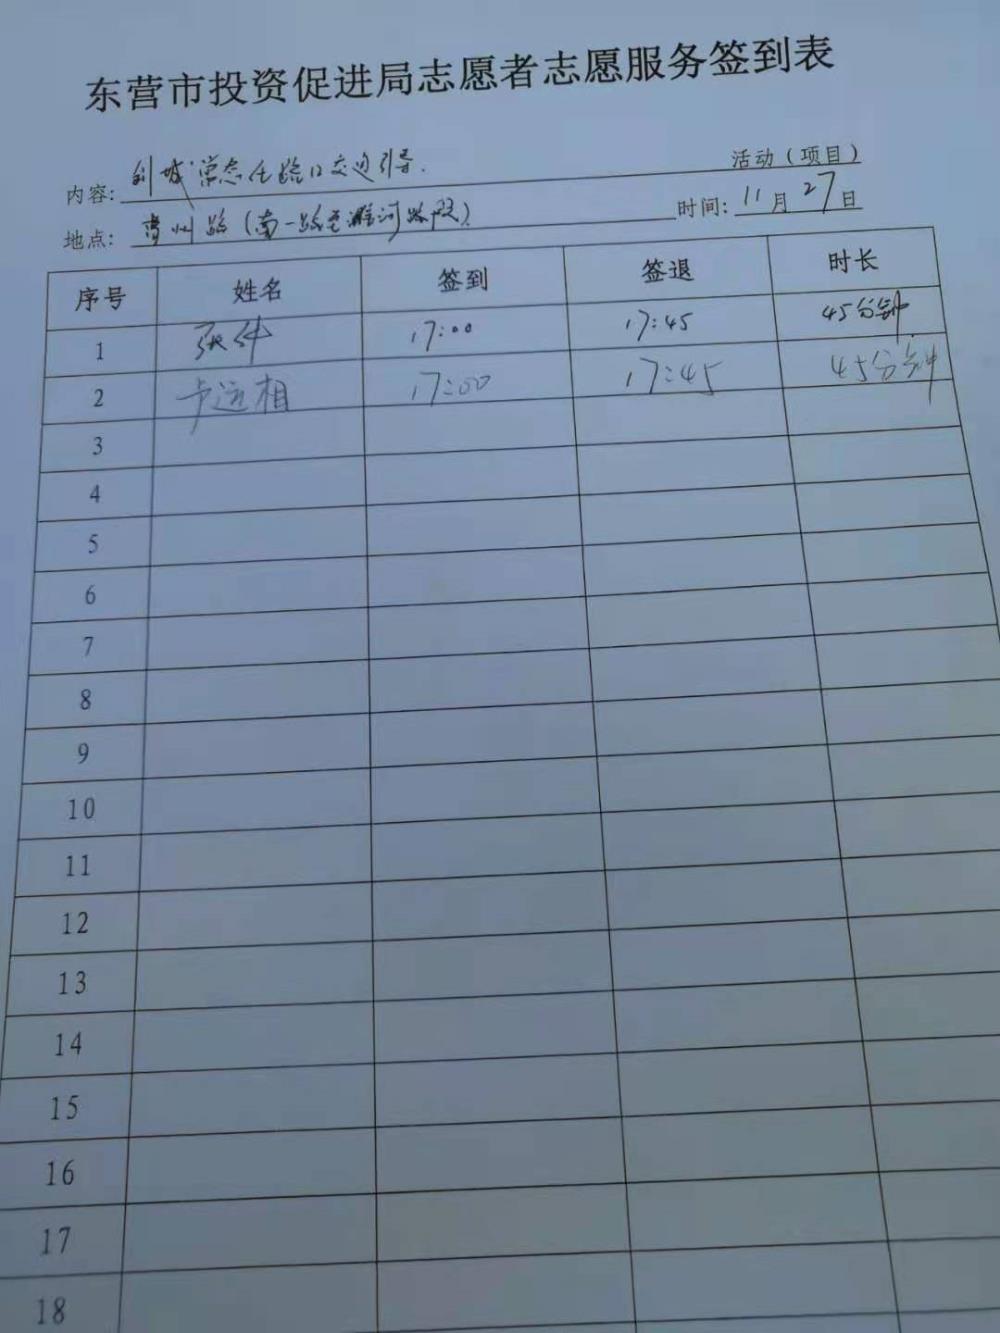 东营市投资促进局志愿者志愿服务签到表
内容: 创城常态化路口交通引导 活动（项目）
地点: 青州路（南一路至潍河路段） 时间: 11月27日
序号 姓名 签到 签退 时长
1 张 17:00 17:45 45分钟
2 卢运相 17:00 17:45 45分钟
3
4
5
6
7
8
9
10
11
12
13
14
15
16
17
18